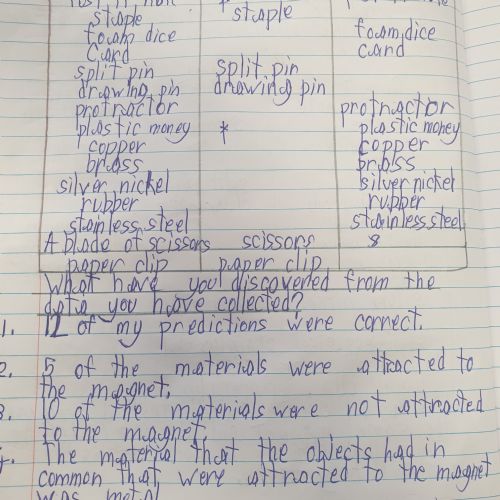 staple staple
foam dice foam dice
card card
split pin split pin
drawing pin drawing pin
protractor protractor
plastic money * plastic money
copper copper
brass brass
silver nickel silver nickel
rubber rubber
stainless steel stainless steel
A blade of scissors scissors 8
paper clip paper clip
What have you discovered from the
data you have collected?
1. 12 of my predictions were correct.
2. 5 of the materials were attracted to
the magnet.
3. 10 of the materials were not attracted
to the magnet
The material that the objects had in
common that were attracted to the magnet
was metal